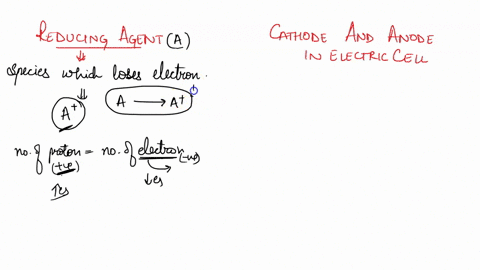 REDUCING AGENT (A)
Species which loses electron.
A⁺
A → A⁺
no. of proton = no. of electron
(+ve) (-ve)
↑es ↓es
CATHODE AND ANODE
IN ELECTRIC CELL